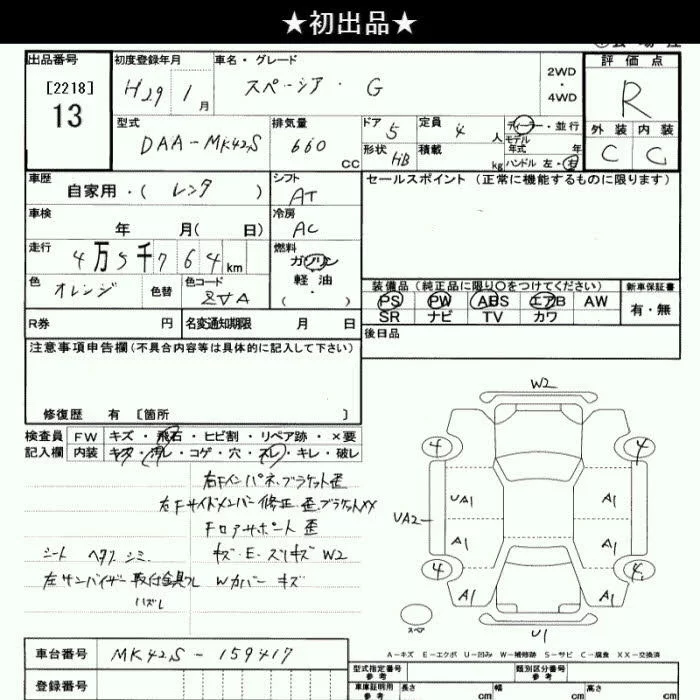 ★初出品★
出品番号 [2218] 13
初度登録年月 H29年 1月
車名・グレード スペーシア・G
2WD・4WD
評価点 R
外装 C 内装 C
型式 DAA-MK42S
排気量 660 CC
ドア 5
形状 HB
定員 4人
積載 kg
ディーラー・並行
モデル年式 年
ハンドル 左・右
車歴 自家用・( レンタ )
シフト AT
セールスポイント (正常に機能するものに限ります)
車検 年 月( 日)
冷房 AC
走行 4万5千764km
燃料 ガソリン 軽油 ( ・ )
色 オレンジ 色替 色コード ZVA
装備品 (純正品に限り○をつけてください)
新車保証書 有・無
PS PW ABS エアB AW
SR ナビ TV カワ
R券 円 名変通知期限 月 日
後日品
注意事項申告欄 (不具合内容等は具体的に記入して下さい)
修復歴 有 [箇所 ]
検査員記入欄
FW キズ・飛石・ヒビ割・リペア跡・×要
内装 キズ・汚レ・コゲ・穴・スレ・キレ・破レ
右Fインパネ、ブラケット歪
右Fサイドメンバー修正 歪、ブラケットXX
Fロアサポート 歪
シート ヘタリ シミ キズ・E・スリキズ W2
左サンバイザー取付金具 ハズレ Wカバー キズ
W2
4 4
UA1 A1
UA2
A1 A1
4 4
A1 A1
スペア
U1
A-キズ E-エクボ U-凹み W-補修跡 S-サビ C-腐食 XX-交換済
車台番号 MK42S-159417
登録番号
型式指定番号 参考 類別区分番号 参考
車庫証明用 参考 長さ cm 幅 cm 高さ cm